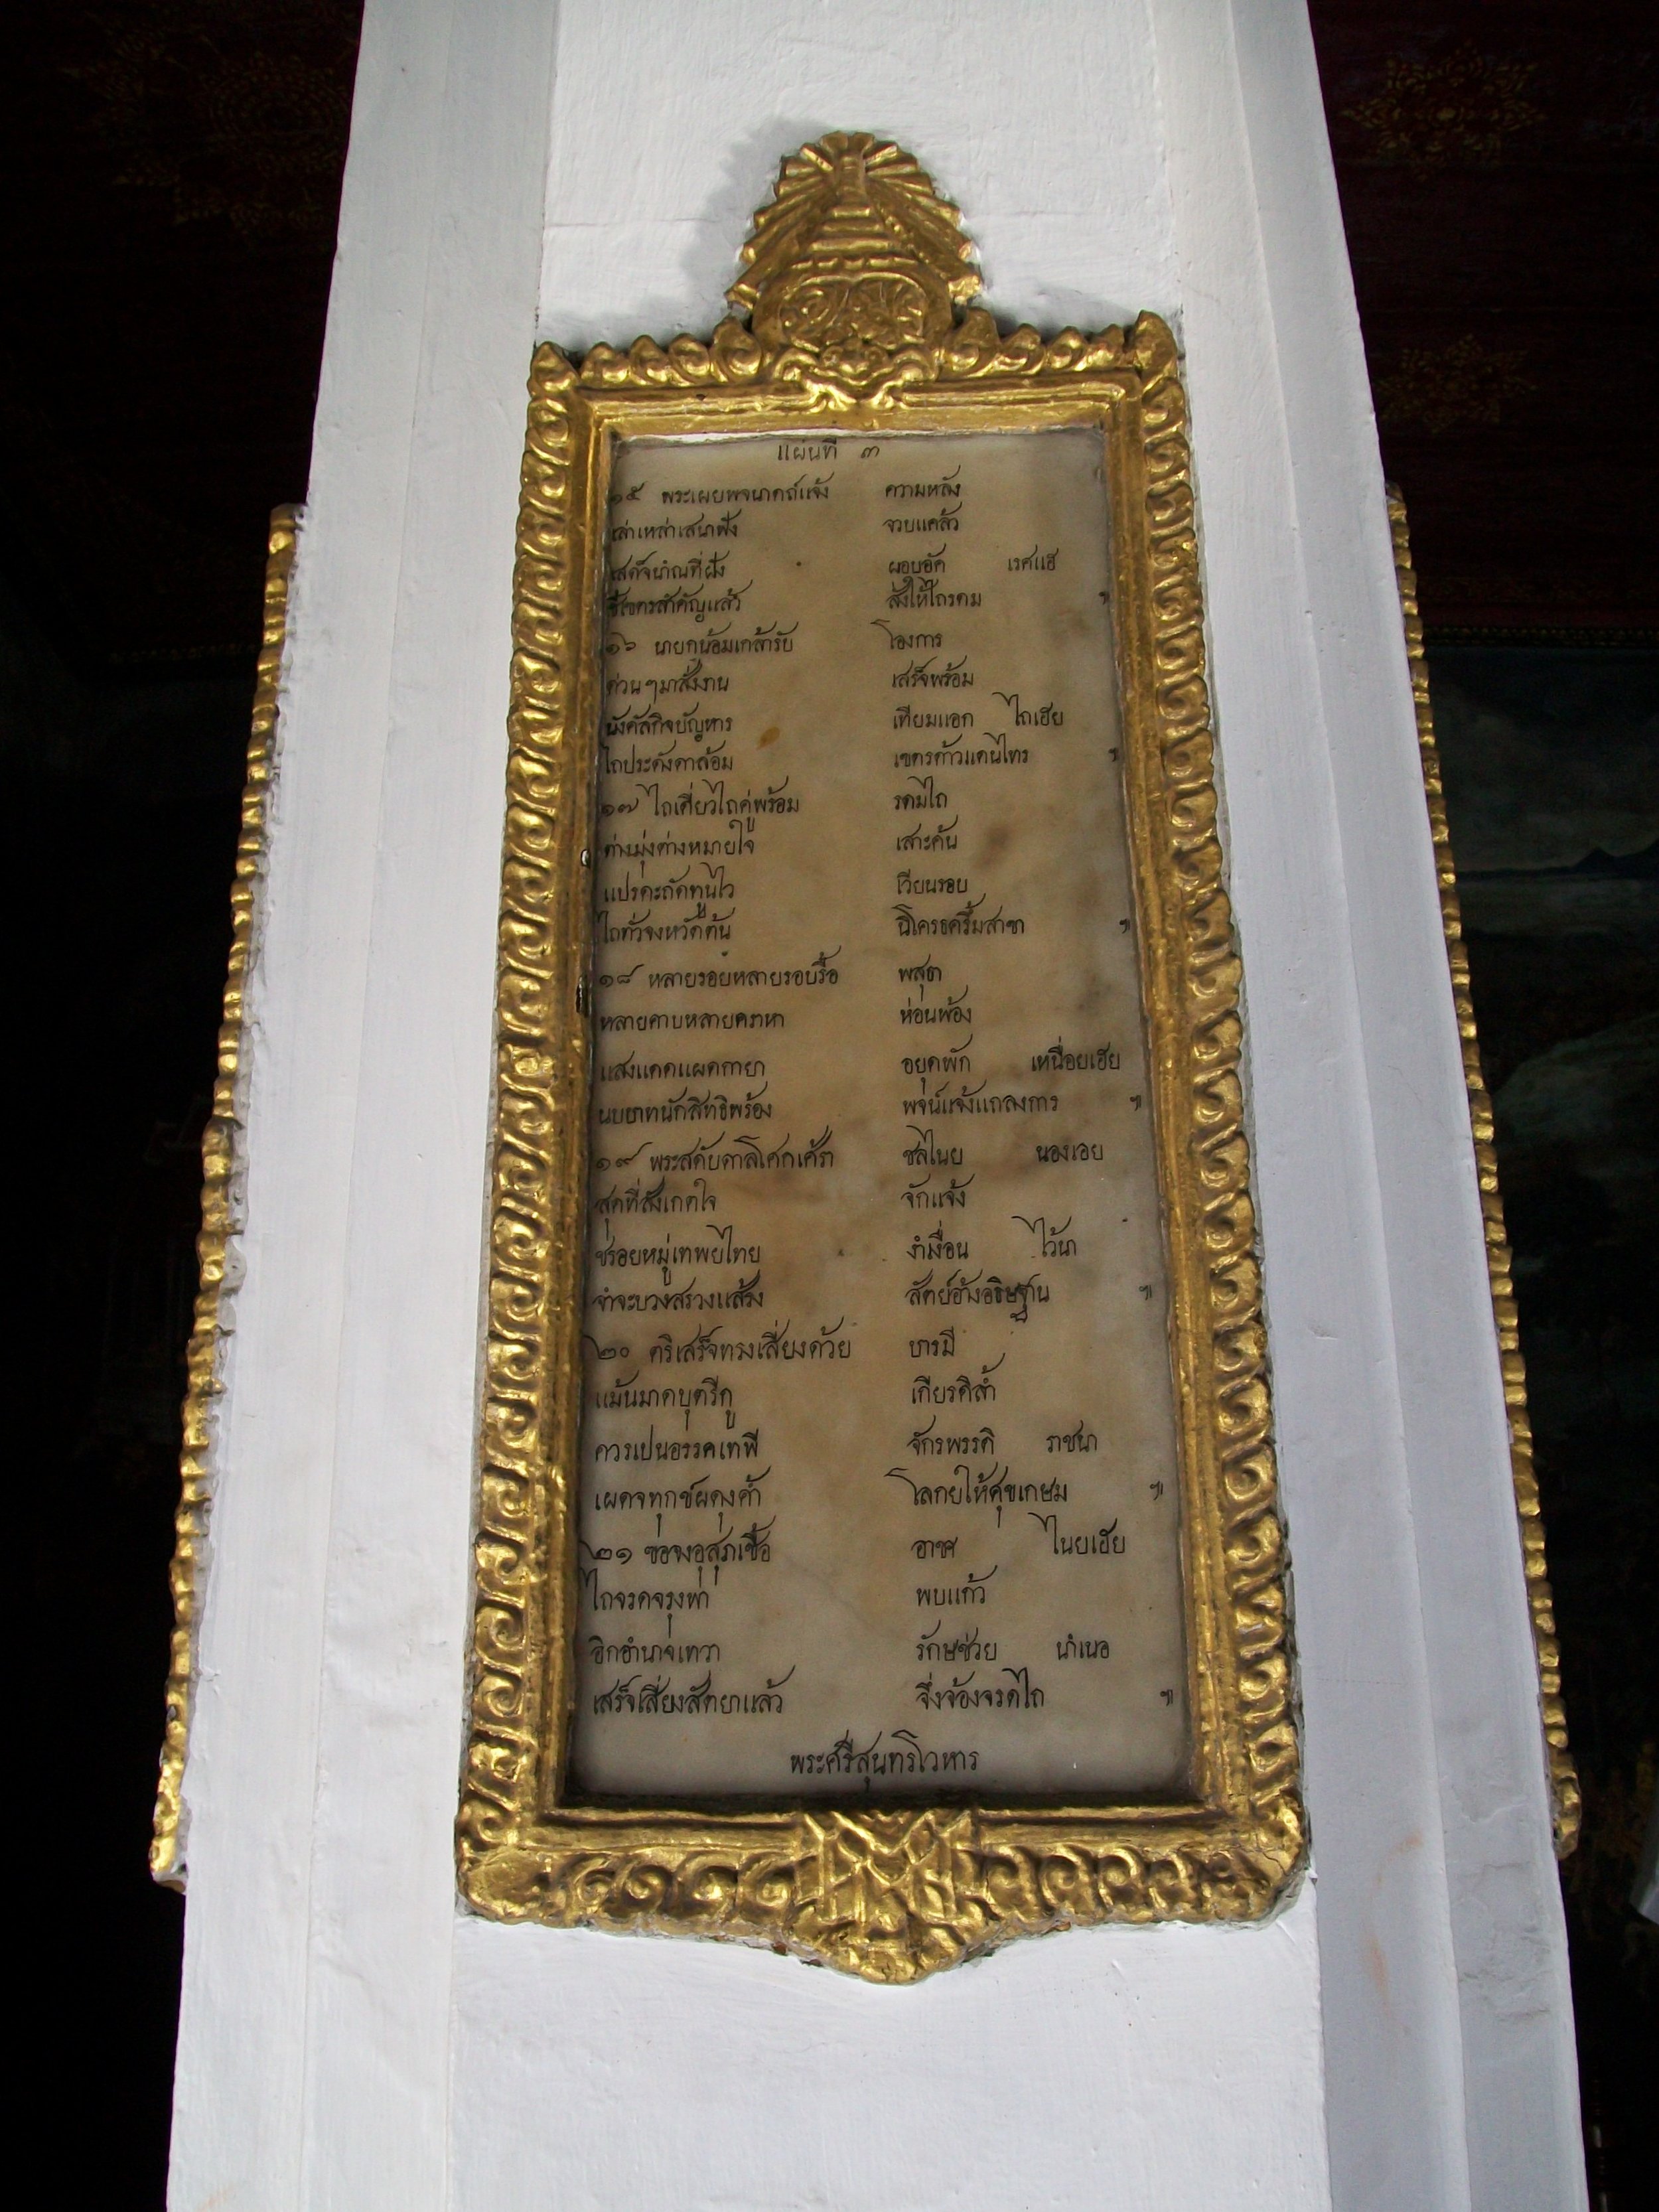 แผ่นที่ ๓
๑๕ พระเผยพจนาดถ์แจ้ง ความหลัง
เล่าเหล่าเสนาฟัง จวบแคล้ว
เสด็จนำณที่ฝัง ผอบอัด เรศแฮ
ชี้เขตรสำคัญแล้ว สั่งให้ไถรดม
๑๖ นายกูน้อมเกล้ารับ โองการ
ด่วนๆมาสั่งงาน เสร็จพร้อม
นังคัลกิจบัญหาร เทียมแอก ไถเฮย
ไถประดังดาล้อม เขตรด้าวแดนไทร
๑๗ ไถเดี่ยวไถคู่พร้อม รดมไถ
ต่างมุ่งต่างหมายใจ เสาะค้น
แปรดะถัดทูนไว เวียนรอบ
ไถทั่วจงหวัดต้น นิโครธครึ้มสาขา
๑๘ หลายรอยหลายรอบรื้อ พสุธา
หลายคาบหลายคราหา ห่อนพ้อง
แสงแดดแผดกายา อยุดพัก เหนื่อยเฮย
นบบาทนักสิทธิพร้อง พจน์แจ้งแถลงการ
๑๙ พระสดับดาลโศกเศร้า ชลไนย นองเอย
สุดที่สังเกตใจ จักแจ้ง
ชรอยหมู่เทพยไทย งำเงื่อน ไว้นา
จำจะบวงสรวงแสร้ง สัตย์อ้างอธิษฐาน
๒๐ ตริเสร็จทรงเสี่ยงด้วย บารมี
แม้นมาดบุตรีกู เกียรติล้ำ
ควรเปนอรรคเทพี จักรพรรดิ ราชนา
เผดจทุกข์ผดุงค้ำ โลกย์ให้ศุขเกษม
๒๑ ขอจงอุสุภเชื้อ อาชา ไนยเฮย
ไถจรดจรุงพา พบแก้ว
อิกอำนาจเทวา รักษช่วย นำเนอ
เสร็จเสี่ยงสัตยาแล้ว จึ่งจ้องจรดไถ
พระศรีสุนทรโวหาร